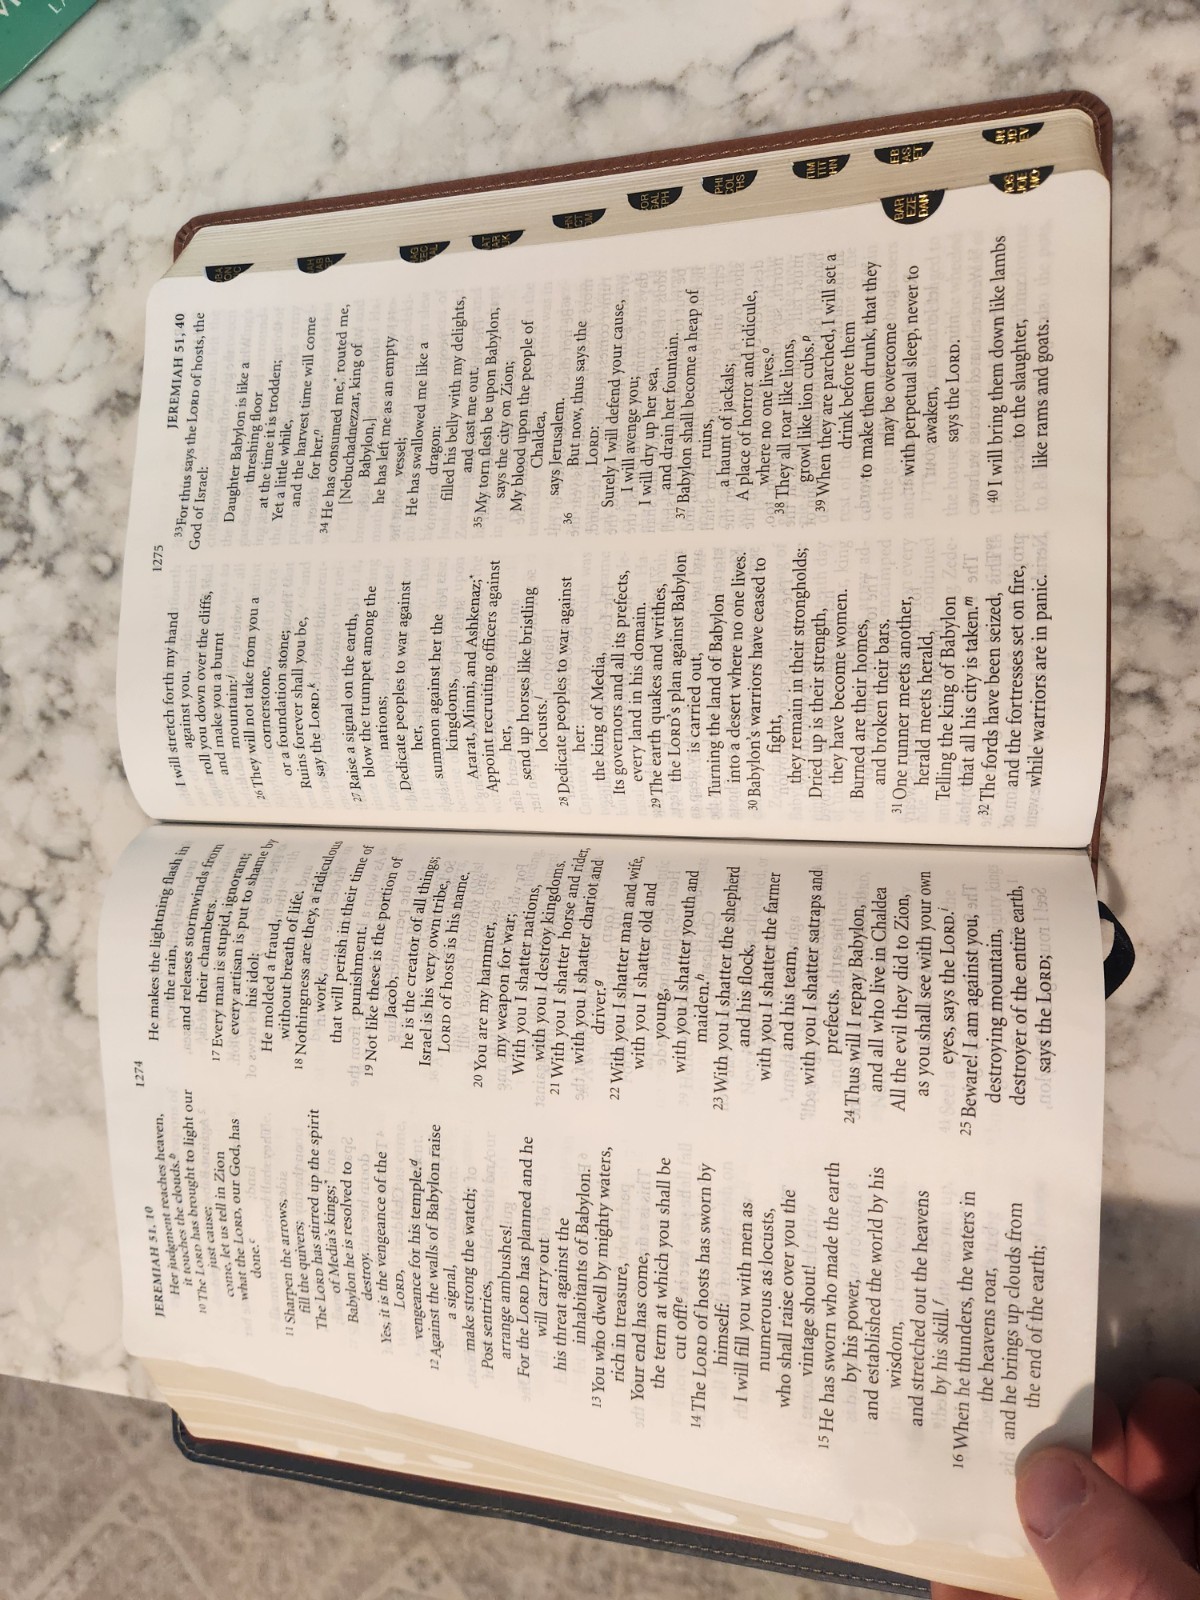 JEREMIAH 51, 10
1274
Her judgment reaches heaven,
it touches the clouds.b
10 The LORD has brought to light our
just cause;
come, let us tell in Zion
what the LORD, our God, has
done.c
11 Sharpen the arrows,
fill the quivers;
The LORD has stirred up the spirit
of Media's kings;*
Babylon he is resolved to
destroy.
Yes, it is the vengeance of the
LORD,
vengeance for his temple.d
12 Against the walls of Babylon raise
a signal,
make strong the watch;
Post sentries,
arrange ambushes!
For the LORD has planned and he
will carry out
his threat against the
inhabitants of Babylon.
13 You who dwell by mighty waters,
rich in treasure,
Your end has come,
the term at which you shall be
cut off!e
14 The LORD of hosts has sworn by
himself:
I will fill you with men as
numerous as locusts,
who shall raise over you the
vintage shout!
15 He has sworn who made the earth
by his power,
and established the world by his
wisdom,
and stretched out the heavens
by his skill.f
16 When he thunders, the waters in
the heavens roar,
and he brings up clouds from
the end of the earth;
He makes the lightning flash in
the rain,
and releases stormwinds from
their chambers.
17 Every man is stupid, ignorant;
every artisan is put to shame by
his idol:
He molded a fraud,
without breath of life.
18 Nothingness are they, a ridiculous
work,
that will perish in their time of
punishment.
19 Not like these is the portion of
Jacob,
he is the creator of all things;
Israel is his very own tribe,
LORD of hosts is his name.
20 You are my hammer,
my weapon for war;
With you I shatter nations,
with you I destroy kingdoms.
21 With you I shatter horse and rider,
with you I shatter chariot and
driver.g
22 With you I shatter man and wife,
with you I shatter old and
young,
with you I shatter youth and
maiden.h
23 With you I shatter the shepherd
and his flock,
with you I shatter the farmer
and his team,
with you I shatter satraps and
prefects.
24 Thus will I repay Babylon,
and all who live in Chaldea
All the evil they did to Zion,
as you shall see with your own
eyes, says the LORD.i
25 Beware! I am against you,
destroying mountain,
destroyer of the entire earth,
says the LORD;
1275
JEREMIAH 51, 40
I will stretch forth my hand
against you,
roll you down over the cliffs,
and make you a burnt
mountain:j
26 They will not take from you a
cornerstone,
or a foundation stone;
Ruins forever shall you be,
say the LORD.k
27 Raise a signal on the earth,
blow the trumpet among the
nations;
Dedicate peoples to war against
her,
summon against her the
kingdoms,
Ararat, Minni, and Ashkenaz;*
Appoint recruiting officers against
her,
send up horses like bristling
locusts.l
28 Dedicate peoples to war against
her:
the king of Media,
Its governors and all its prefects,
every land in his domain.
29 The earth quakes and writhes,
the LORD's plan against Babylon
is carried out,
Turning the land of Babylon
into a desert where no one lives.
30 Babylon's warriors have ceased to
fight,
they remain in their strongholds;
Dried up is their strength,
they have become women.
Burned are their homes,
and broken their bars.
31 One runner meets another,
herald meets herald,
Telling the king of Babylon
that all his city is taken.m
32 The fords have been seized,
and the fortresses set on fire,
while warriors are in panic.
33 For thus says the LORD of hosts, the
God of Israel:
Daughter Babylon is like a
threshing floor
at the time it is trodden;
Yet a little while,
and the harvest time will come
for her.n
34 He has consumed me,* routed me,
[Nebuchadnezzar, king of
Babylon,]
he has left me as an empty
vessel;
He has swallowed me like a
dragon:
filled his belly with my delights,
and cast me out.
35 My torn flesh be upon Babylon,
says the city on Zion;
My blood upon the people of
Chaldea,
says Jerusalem.
36 But now, thus says the
LORD:
Surely I will defend your cause,
I will avenge you;
I will dry up her sea,
and drain her fountain.
37 Babylon shall become a heap of
ruins,
a haunt of jackals;
A place of horror and ridicule,
where no one lives.o
38 They all roar like lions,
growl like lion cubs.p
39 When they are parched, I will set a
drink before them
to make them drunk, that they
may be overcome
with perpetual sleep, never to
awaken,
says the LORD.
40 I will bring them down like lambs
to the slaughter,
like rams and goats.
BAR
EZE
DAN
TIM
TIT
PHI
COL
THS